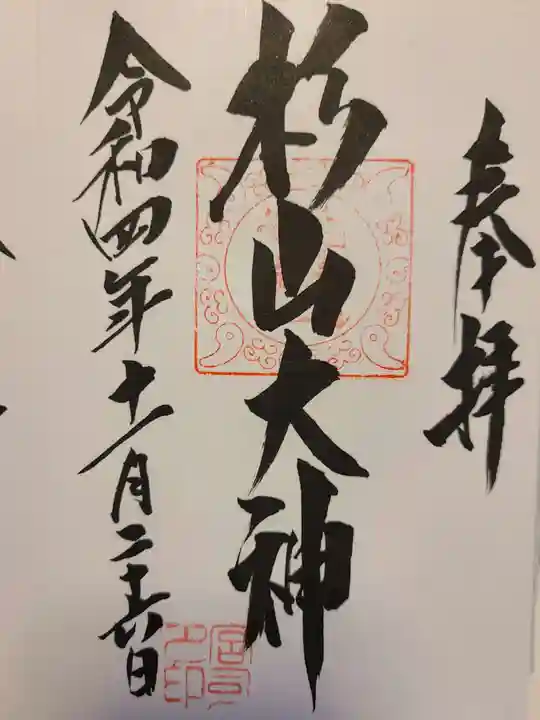 奉拝
杉山大神
令和四年十一月二十六日
宮司之印